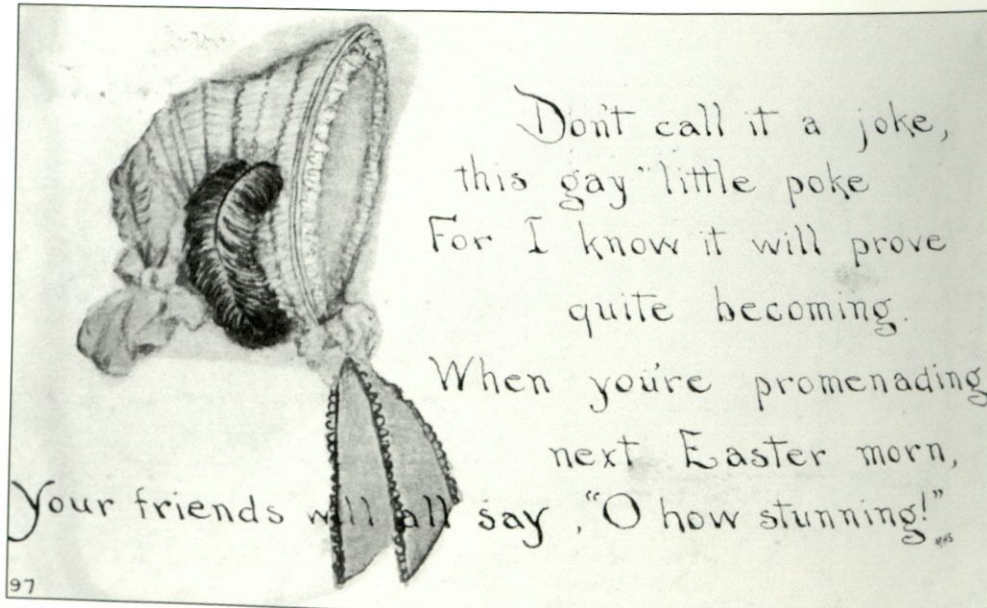 Don't call it a joke,
this gay "little poke
For I know it will prove
quite becoming.
When you're promenading
next Easter morn,
Your friends will all say, "O how stunning!"
97